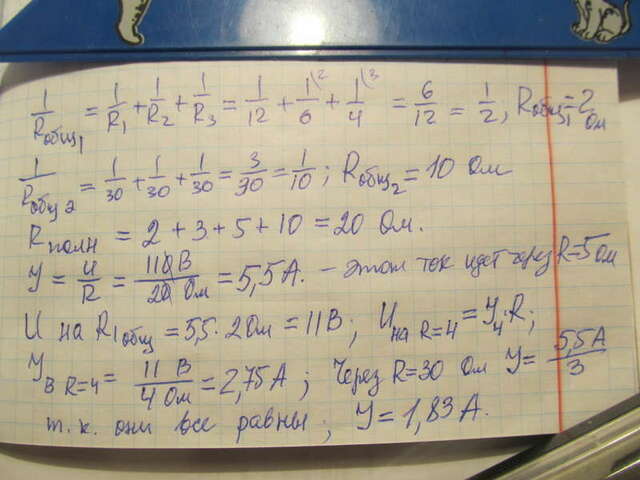 1/Rобщ1 = 1/R1 + 1/R2 + 1/R3 = 1/12 + 1\2/6 + 1\3/4 = 6/12 = 1/2, Rобщ1 = 2 Ом
1/Rобщ2 = 1/30 + 1/30 + 1/30 = 3/30 = 1/10; Rобщ2 = 10 Ом
Rполн = 2 + 3 + 5 + 10 = 20 Ом.
У = U/R = 110 В/20 Ом = 5,5 А. – этот ток идет через R=5 Ом
U на R1общ = 5,5 · 2 Ом = 11 В; U на R=4 = У4·R;
Ув R=4 = 11 В/4 Ом = 2,75 А; Через R=30 Ом У = 5,5 А/3
т.к. они все равны; У = 1,83 А.